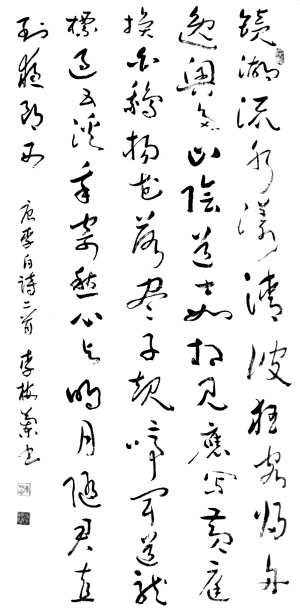 镜湖流水漾清波狂客归舟
逸興多山陰道士如相見應写黄庭
换白鹅杨花落尽子规啼闻道龙
標过五溪我寄愁心与明月随君直
到夜郎西
唐李白诗二首 李梅兰书